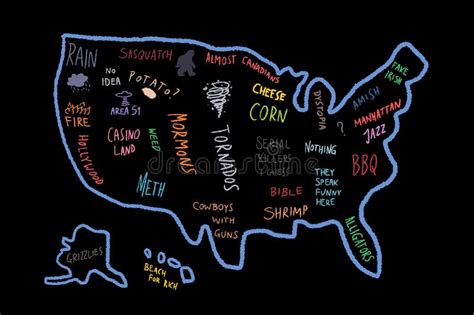 RAIN
SASQUATCH
ALMOST CANADIANS
FAKE
IRISH
NO
IDEA
POTATO?
CHEESE
DYSTOPIA
AMISH
AREA 51
CORN
MANHATTAN
?
FIRE
CASINO
LAND
WEED
MORMONS
TORNADOS
SERIAL
KILLERS
NOTHING
JAZZ
HOLLYWOOD
BBQ
METH
BIBLE
THEY
SPEAK
FUNNY
HERE
COWBOYS
WITH
GUNS
SHRIMP
ALLIGATORS
GRIZZLIES
BEACH
FOR RICH
dreamstime